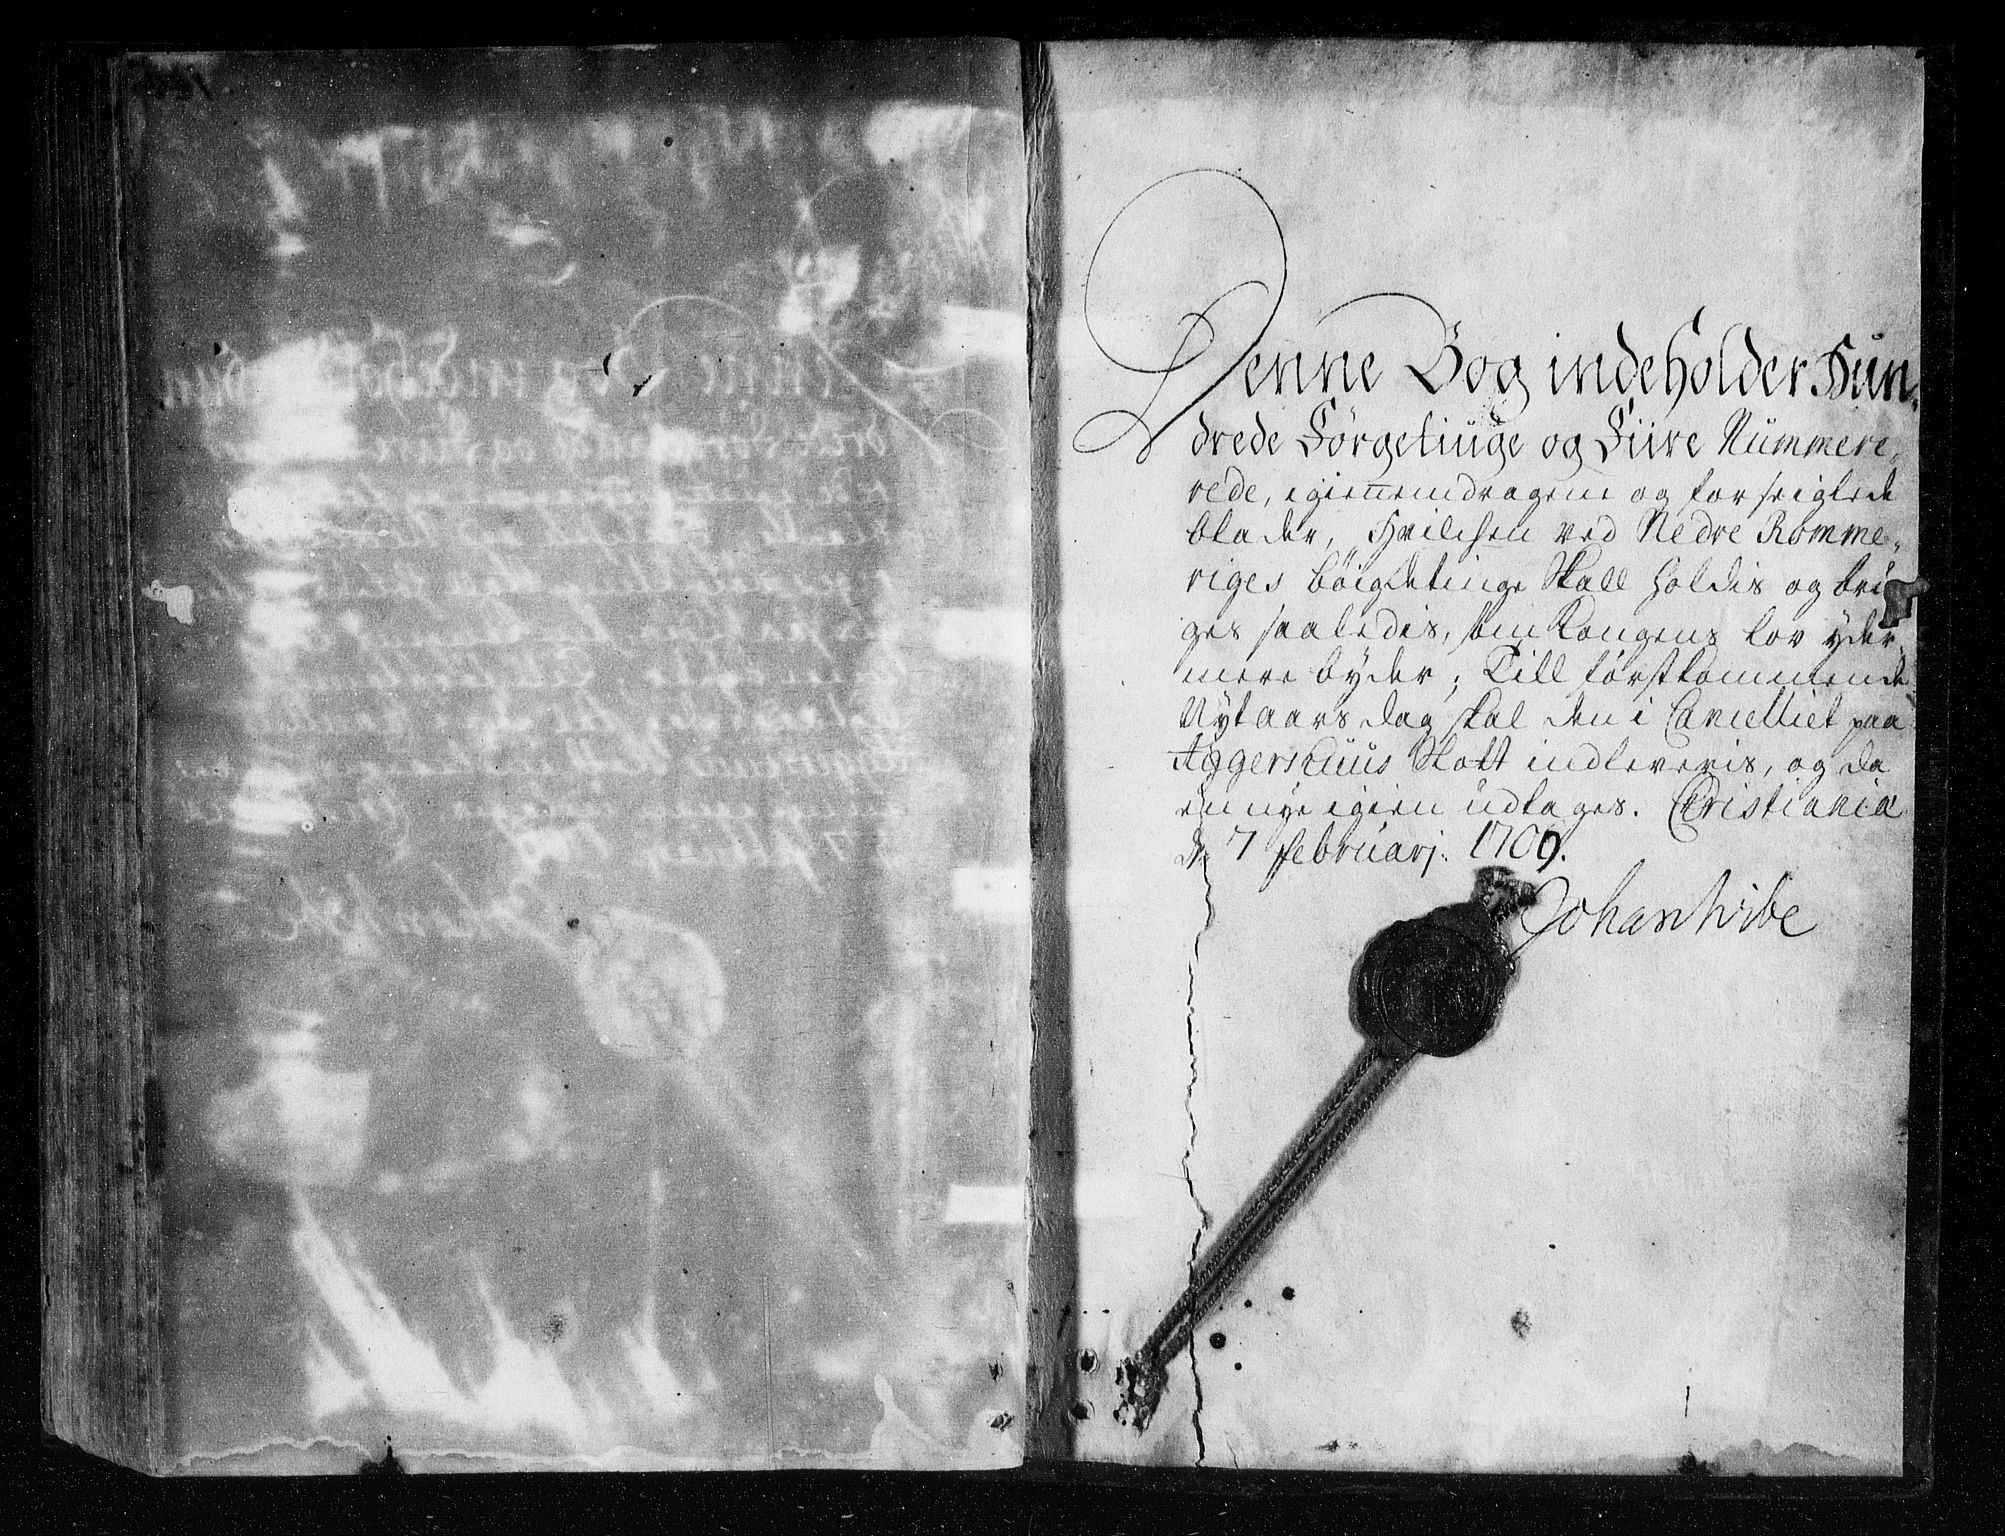 Denne Bog indeholder Hun,
drede Förgetiuge og Fiire Nummere,
rede, igiennemdragene og forseiglede
blader, Hvilchen ved Nedre Romme,
riges böigdetinge Skall holdis og bru
ges saaledis, som Kongens lov yder,
mere byder; Till förstkommende
Nytaarsdag skal den i Cancelliet paa
Aggershuus Slott indleveris, og da
en nye igien udtages. Christiania
d. 7 Februarj. 1700.
Johan Wibe